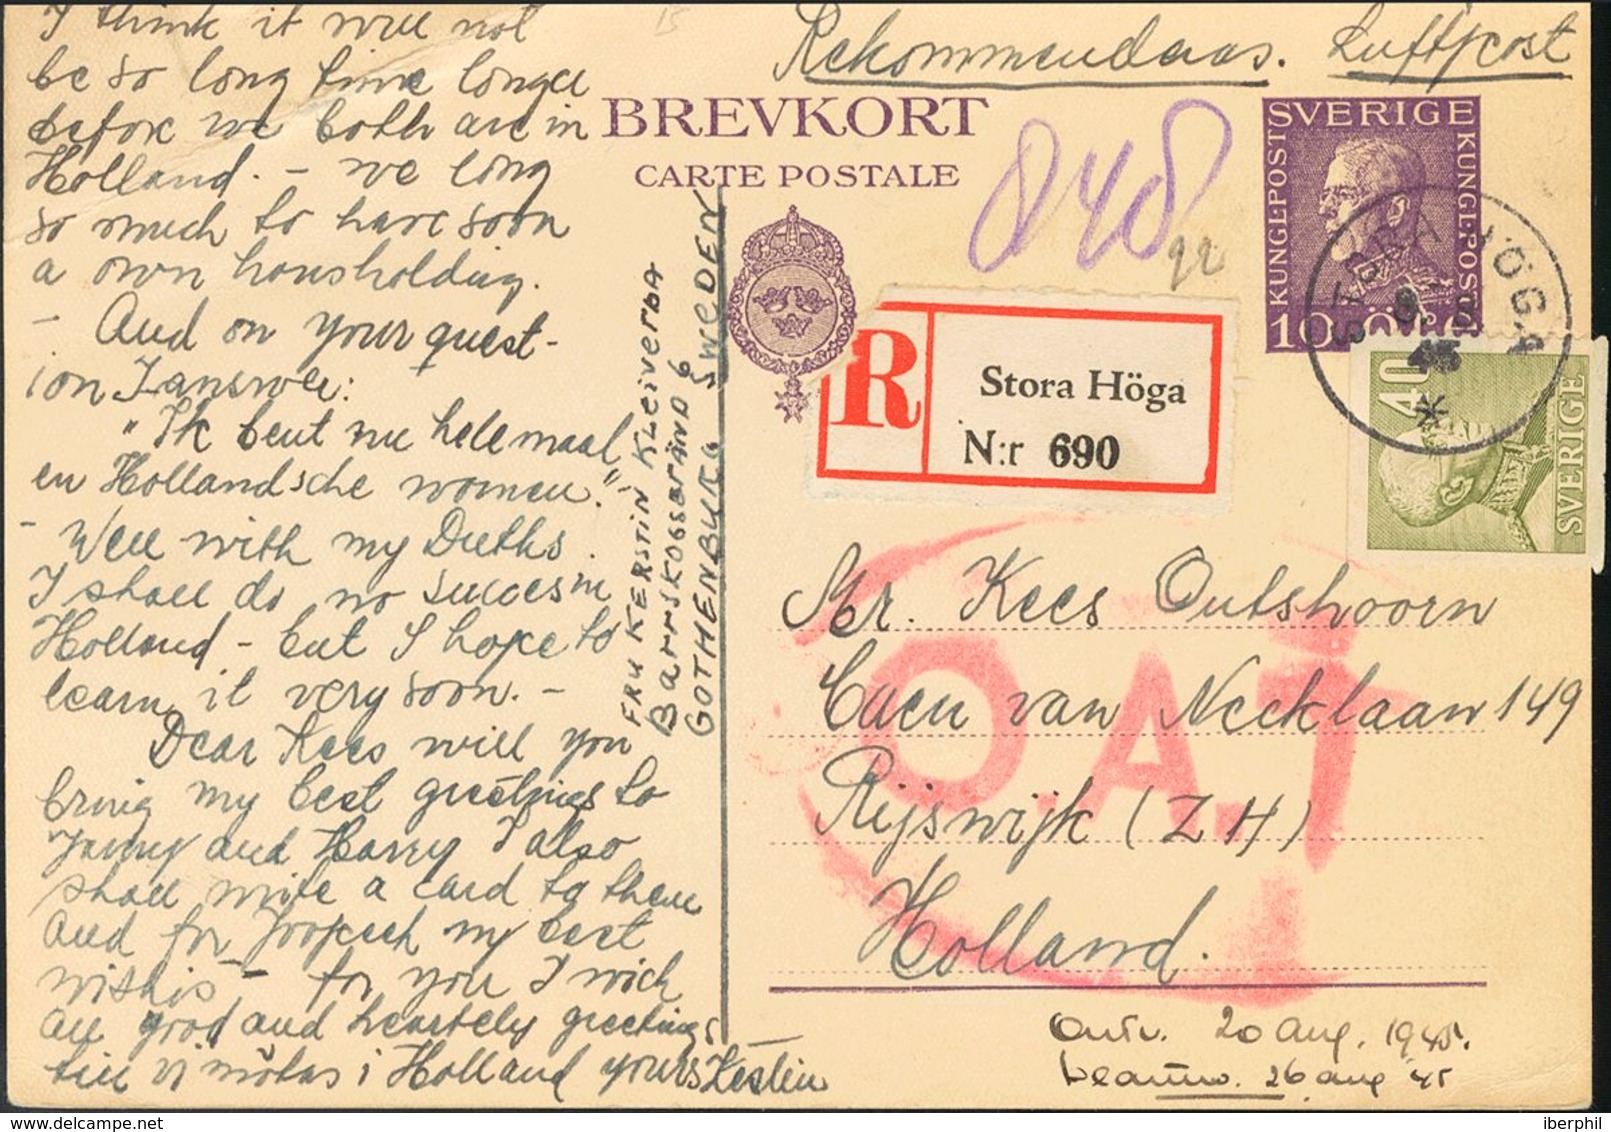 I think it will not
be so long time longer
before we both are in
Holland. - we long
so much to have soon
a own housholding.
- And on your quest-
ion I answer:
"Ik bent nu helemaal
en Hollandsche women."
- Well with my Duths.
I shall do no succes in
Holland - but I hope to
learn it very soon. -
Dear Kees will you
bring my best greetings to
and Harry I also
shall write a card to them
And for my best
wishis - for you I wich
all good and heartely greetings
till vi mötas i Holland yours Kerstin
FRU KERSTIN KLEIVERDA
BARRSKOGSGRÄND 6
GOTHENBURG. SWEDEN
Rekommenderas. Luftpost
15
BREVKORT
CARTE POSTALE
848
22
SVERIGE
KUNGL.POST
KUNGL.POST
10 ÖRE 10
STORA HÖGA
45
*
40
SVERIGE
R
Stora Höga
N:r 690
O.A.T
Mr. Kees Outshoorn
Caen van Necklaan 149
Rijswijk (Z H)
Holland.
Ontv. 20 aug. 1945.
beantw. 26 aug '45
iberphil